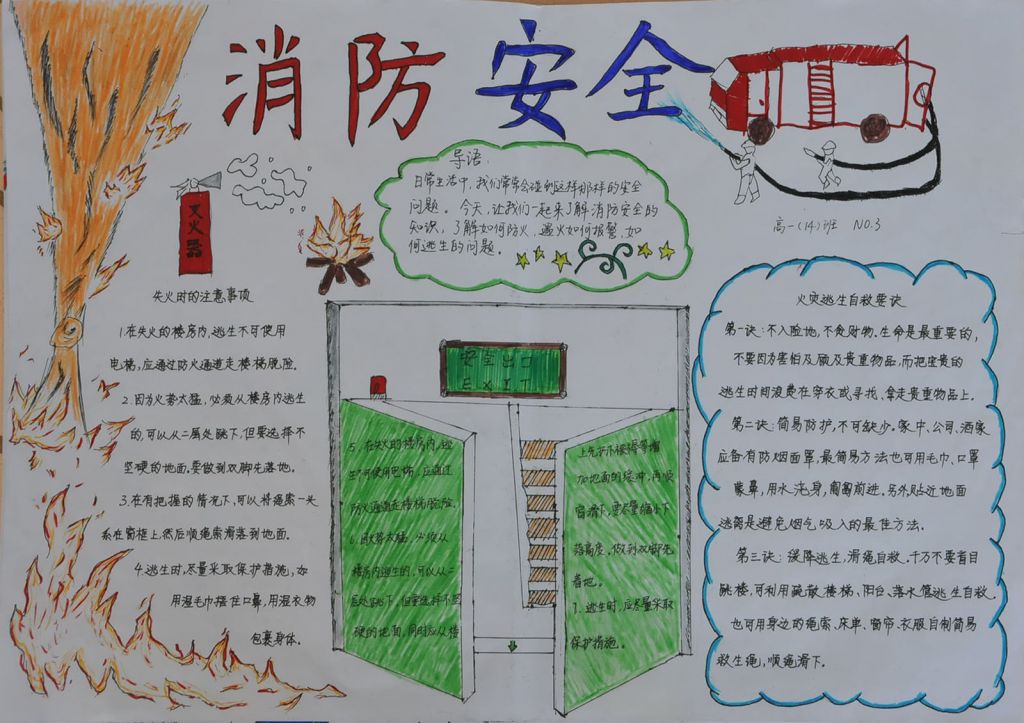 消防安全
灭火器
导语:
日常生活中,我们常常会碰到这样那样的安全
问题。今天,让我们一起来了解消防安全的
知识,了解如何防火,遇火如何报警,如
何逃生的问题。
高一(14)班 NO.3
失火时的注意事项
1.在失火的楼房内,逃生不可使用
电梯,应通过防火通道走楼梯脱险。
2.因为火势太猛,必须从楼房内逃生
的,可以从二层处跳下,但要选择不
坚硬的地面,要做到双脚先落地。
3.在有把握的情况下,可以将绳索一头
系在窗框上,然后顺绳索滑落到地面。
4.逃生时,尽量采取保护措施,如
用湿毛巾捂住口鼻,用湿衣物
包裹身体。
安全出口
EXIT
5.在失火的楼房内,逃
生不可使用电梯,应通过
防火通道走楼梯脱险。
6.因火势太猛,必须从
楼房内逃生的,可以从二
层处跳下,但要选择不坚
硬的地面,同时应从楼
上先扔下被褥等增
加地面的缓冲,再顺
窗滑下,要尽量缩小下
落高度,做到双脚先
着地。
7.逃生时,应尽量采取
保护措施。
火灾逃生自救要诀
第一诀:不入险地,不贪财物.生命是最重要的,
不要因为害怕及顾及贵重物品,而把宝贵的
逃生时间浪费在穿衣或寻找、拿走贵重物品上.
第二诀:简易防护,不可缺少。家中、公司、酒家
应备有防烟面罩,最简易方法也可用毛巾、口罩
蒙鼻,用水浇身,匍匐前进,另外贴近地面
逃离是避免烟气吸入的最佳方法.
第三诀:缓降逃生,滑绳自救.千万不要盲目
跳楼,可利用疏散楼梯、阳台、落水管逃生自救.
也可用身边的绳索、床单、窗帘、衣服自制简易
救生绳,顺绳滑下.